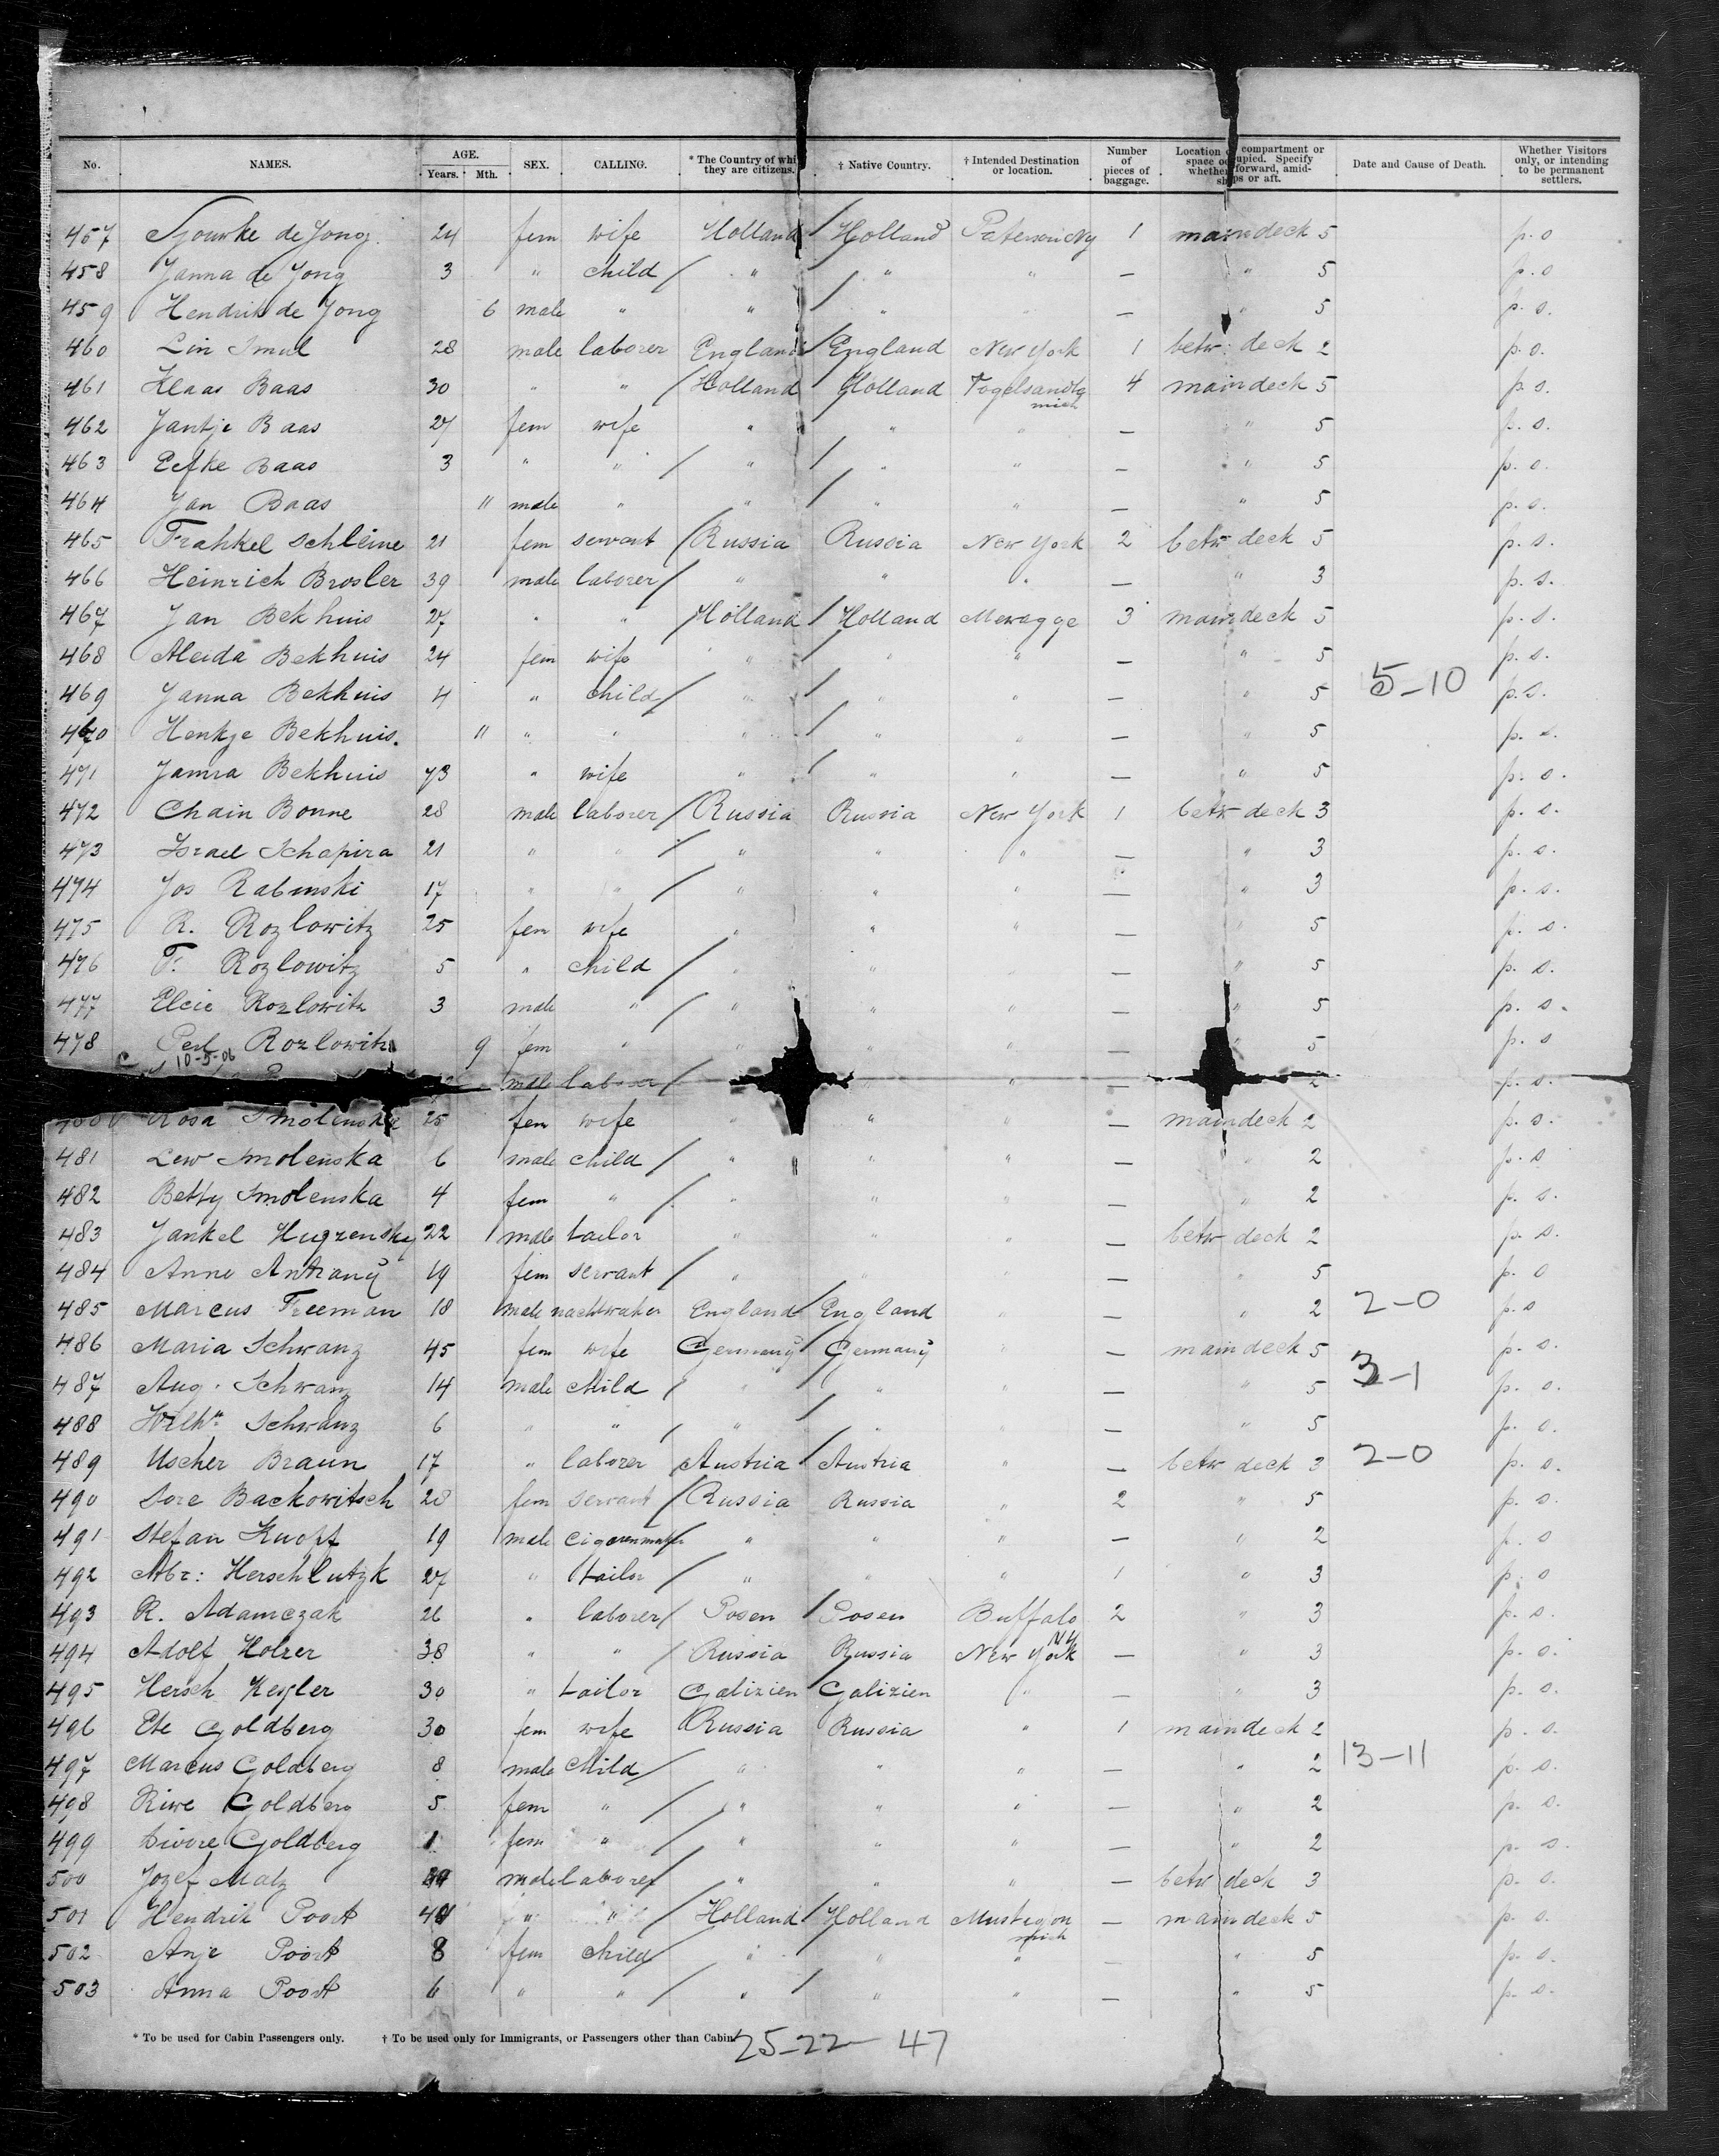 No. NAMES. AGE. Years. Mth. SEX. CALLING. * The Country of whi they are citizens. † Native Country. † Intended Destination or location. Number of pieces of baggage. Location compartment or space upied. Specify whether forward, amid- ps or aft. Date and Cause of Death. Whether Visitors only, or intending to be permanent settlers.
457 Sjouwke de Jong. 24 fem wife Holland / Holland Paterson Ny 1 maindeck 5 p. o
458 Janna de Jong 3 " child / " / " " — " 5 p. o
459 Hendrik de Jong 6 male " " / " " — " 5 p. s.
460 28 male laborer England / England New York 1 betw: deck 2 p. o.
461 Klaas Baas 30 " " / Holland Holland mich 4 maindeck 5 p. s.
462 Jantje Baas 27 fem wife " " " — " 5 p. s.
463 Eefke Baas 3 " " / " / " " — " 5 p. o.
464 Jan Baas 11 male " " / " " — " 5 p. s.
465 Frahkel Schleine 21 fem servant / Russia Russia New York 2 betw deck 5 p. s.
466 Heinrich Brosler 39 male laborer / " " " — " 3 p. s.
467 Jan Bekhuis 27 " " / Holland / Holland 3 maindeck 5 p. s.
468 Aleida Bekhuis 24 fem wife " / " " — " 5 p. s.
469 Janna Bekhuis 4 " child / " / " " — " 5 5-10 p. s.
470 Henkje Bekhuis. 11 " " " / " " — " 5 p. s.
471 Janna Bekhuis 73 " wife " / " " — " 5 p. s.
472 Chain Bonne 28 male laborer / Russia Russia New York 1 betw deck 3 p. s.
473 Israel Schapira 21 " " / " " " — " 3 p. s.
474 Jos Rabinski 17 " " / " " " — " 3 p. s.
475 R. Rozlowitz 25 fem wife " " " — " 5 p. s.
476 F. Rozlowitz 5 " child / " " " — " 5 p. s.
477 Elcie Rozlowitz 3 male " / " " " — " 5 p. s.
478 Perl Rozlowitz 9 fem " " " " — " 5 p. s
10-5-06
male laborer / " " — 2 p. s.
Rosa Smolenska 25 fem wife " " " — maindeck 2 p. s.
481 Lew Smolenska 6 male child / " " " — " 2 p. s
482 Betty Smolenska 4 fem " / " " " — " 2 p. s.
483 Jankel 22 male tailor " " " — betw deck 2 p. s.
484 Anne 19 fem servant / " " " — " 5 p. o
485 Marcus Freeman 18 male England / England " — " 2 2-0 p. s
486 Maria Schwanz 45 fem wife Germany / Germany " — maindeck 5 p. s.
487 Aug. Schwanz 14 male child / " " " — " 5 3-1 p. s.
488 Wilhm Schwanz 6 " " / " / " " — " 5 p. o.
489 Uscher Braun 17 " laborer / Austria / Austria " — betw deck 3 2-0 p. s.
490 Sore Backowitsch 28 fem servant / Russia Russia " 2 " 5 p. s.
491 Stefan Knoff 19 male cigarenmaker / " " " — " 2 p. o
492 Abr: Herschlutzk 27 " tailor / " " " 1 " 3 p. o
493 R. Adamczak 26 " laborer / Posen / Posen Buffalo NY 2 " 3 p. s.
494 Adolf Holzer 38 " " / Russia Russia New York — " 3 p. o.
495 Hersch Kegler 30 " tailor Galizien Galizien " — " 3 p. o.
496 Ete Goldberg 30 fem wife Russia Russia " 1 maindeck 2 p. s.
497 Marcus Goldberg 8 male child / " " " — " 2 13-11 p. s.
498 Riwe Goldberg 5 fem " / " " " — " 2 p. s.
499 Diwore Goldberg 1 fem " / " " " — " 2 p. s.
500 Jozef Malz male laborer / " " " — betw deck 3 p. o.
501 Hendrik Poort " " / Holland / Holland Muskegon mich — maindeck 5 p. o.
502 Anje Poort 8 fem child / " " " — " 5 p. s.
503 Anna Poort 6 " " / " / " " — " 5 p. s.
* To be used for Cabin Passengers only. † To be used only for Immigrants, or Passengers other than Cabin
25-22- 47